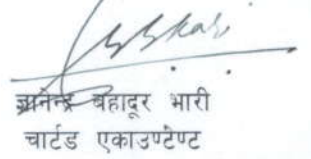 ज्ञानेन्द्र बहादूर भारी
चार्टड एकाउण्टेण्ट